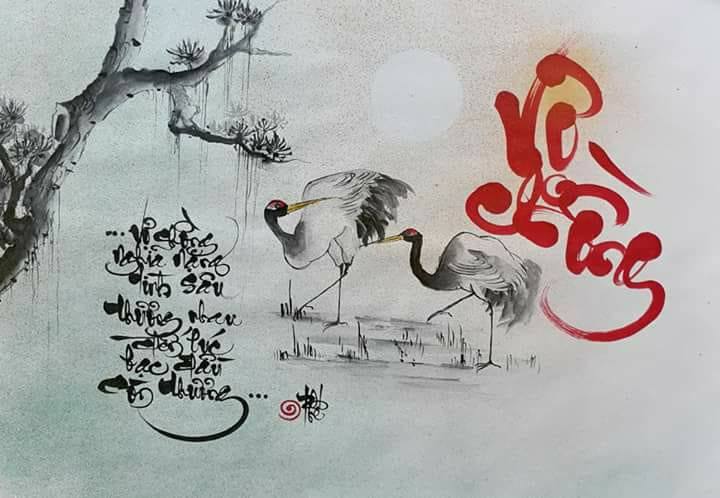 Vợ
Chồng
... Vợ chồng
nghĩa nặng
tình sâu
thương nhau
đến lúc
bạc đầu
còn thương ...